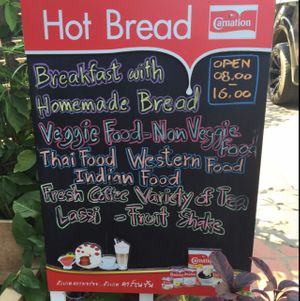 Hot Bread
Carnation
OPEN
08.00
-
16.00
Breakfast with
Homemade Bread
Veggie Food - Non Veggie
Food
Thai Food Western Food
Indian Food
Fresh Coffee Variety of Tea
Lassi - Fruit Shake
Carnation